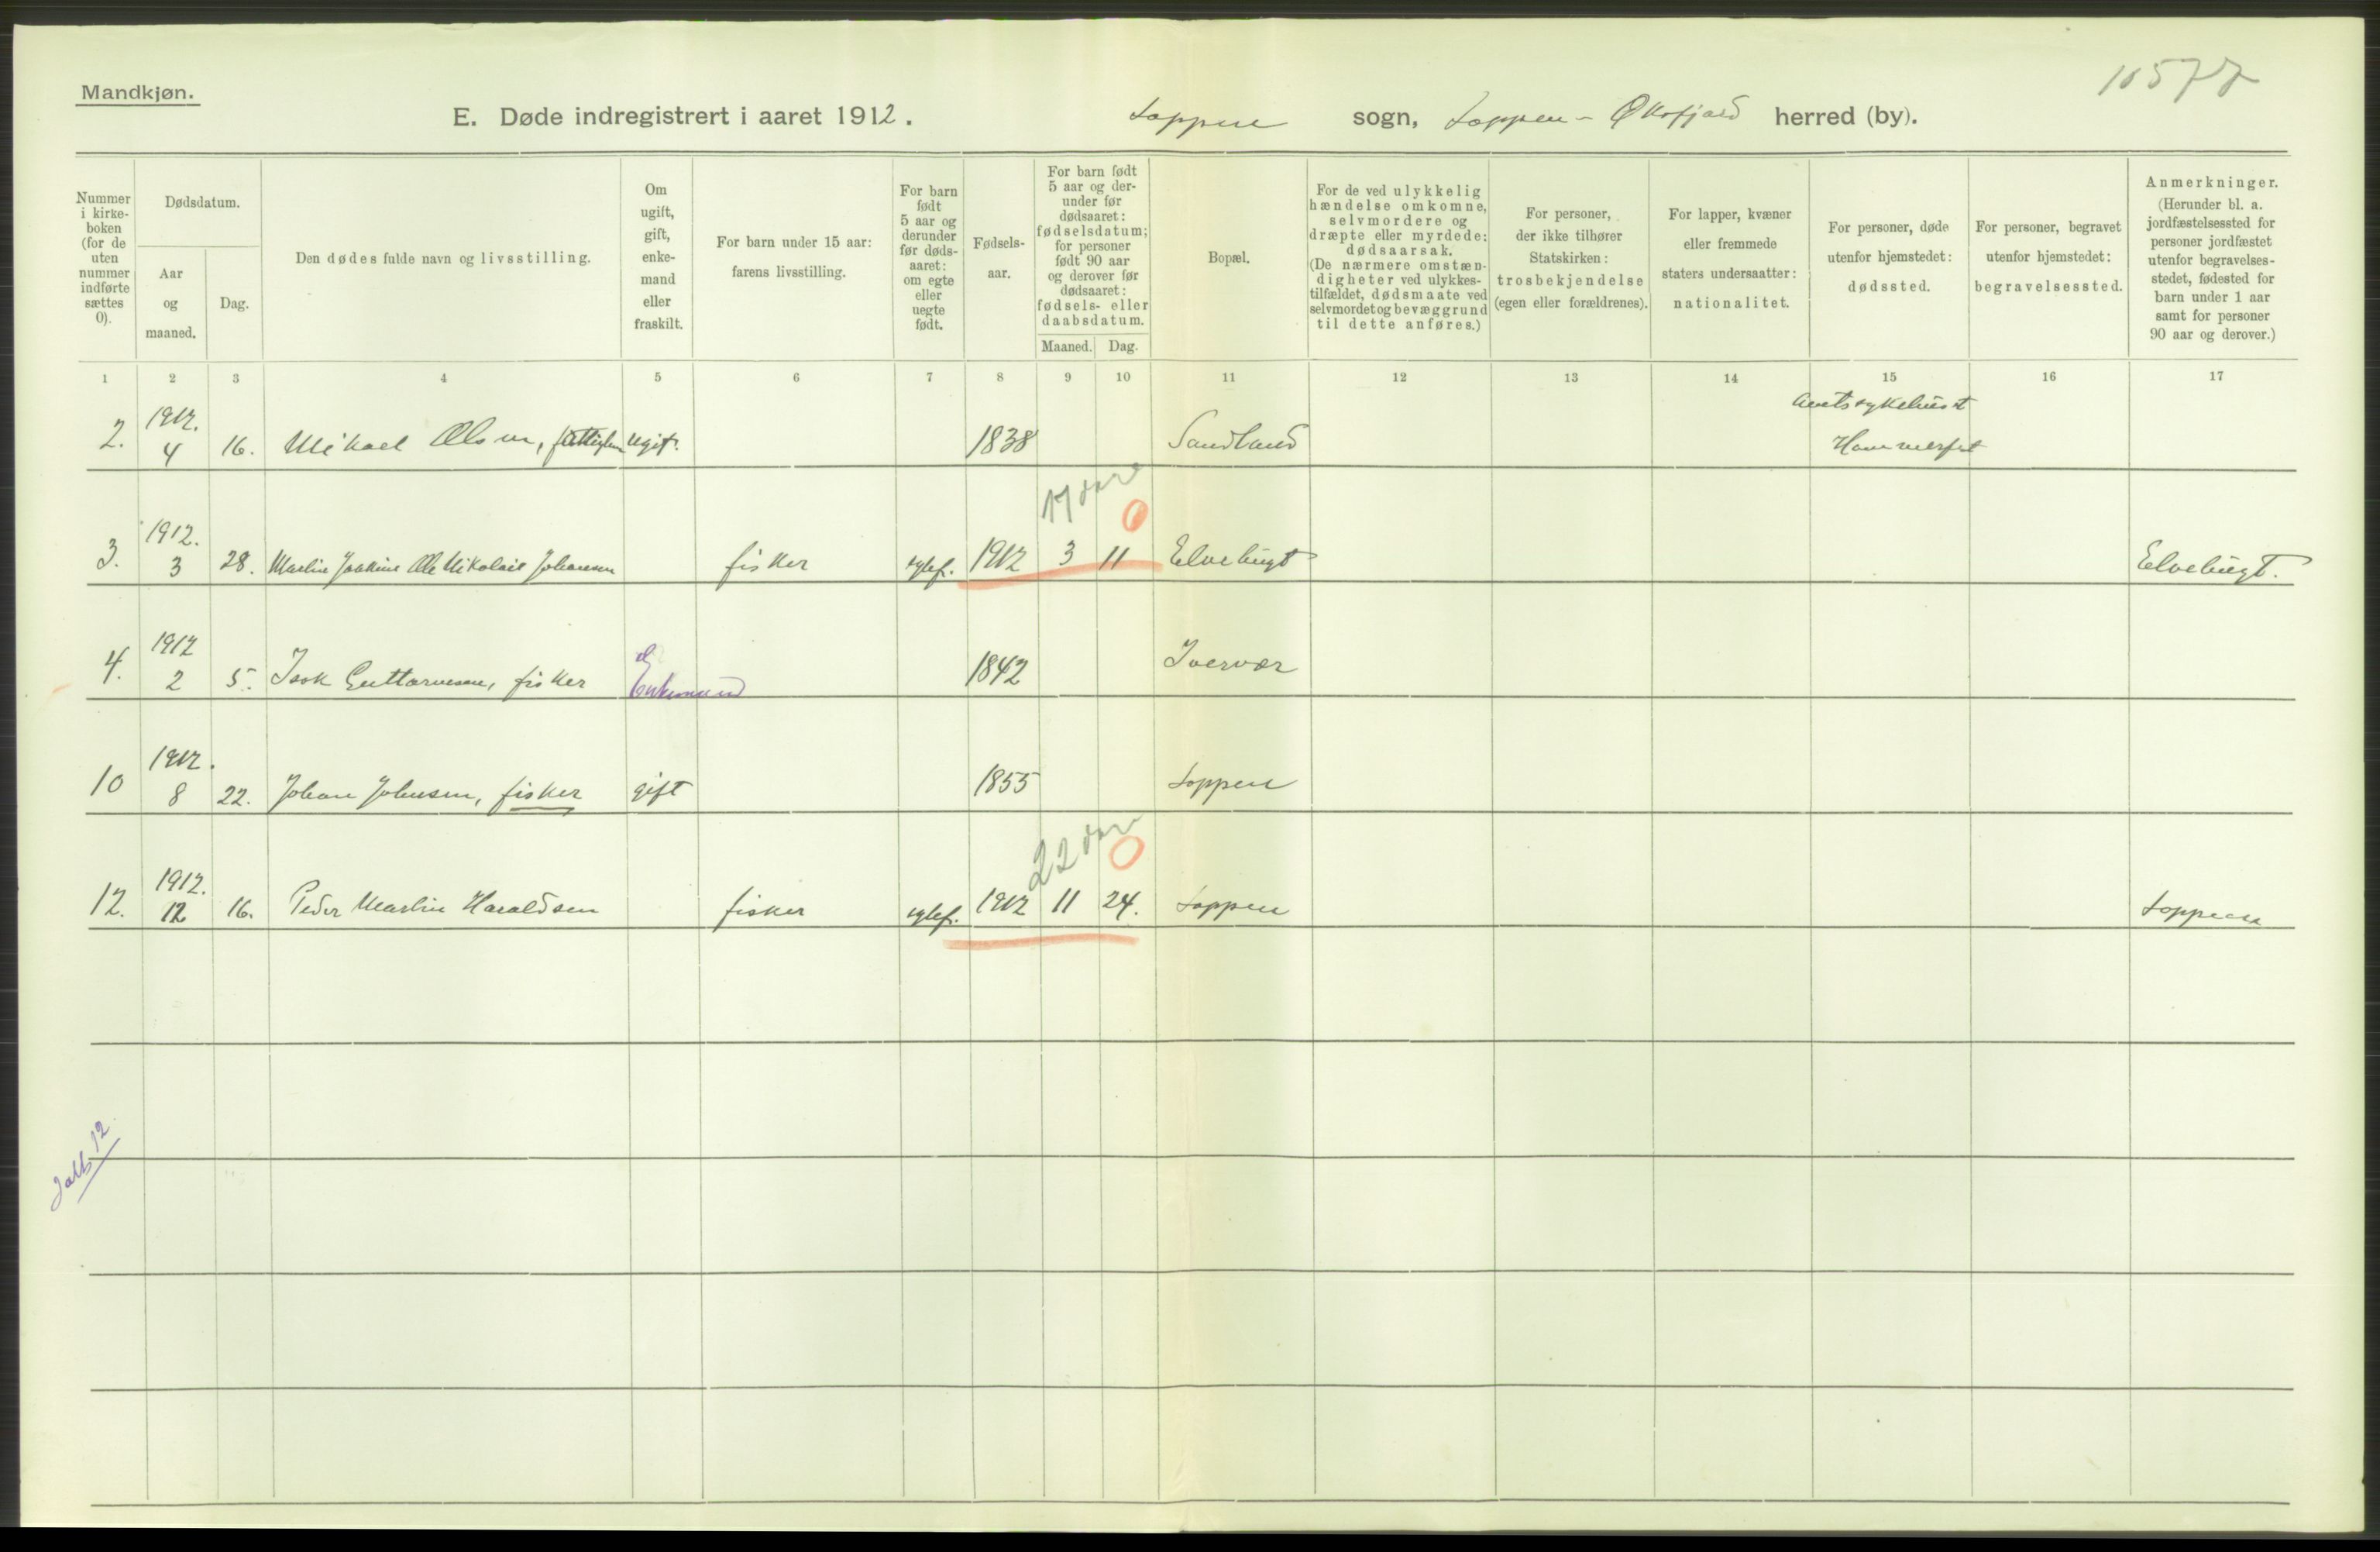 10577
Mandkjøn.
E. Døde indregistrert i aaret 1912. Loppen sogn, Loppen - Øksfjord herred (by).
Nummer i kirkeboken (for de uten nummer indførte sættes 0).
Dødsdatum.
Aar og maaned.
Dag.
Den dødes fulde navn og livsstilling.
Om ugift, gift, enkemand eller fraskilt.
For barn under 15 aar: farens livsstilling.
For barn født 5 aar og derunder før dødsaaret: om egte eller uegte født.
Fødselsaar.
For barn født 5 aar og derunder før dødsaaret: fødselsdatum; for personer født 90 aar og derover før dødsaaret: fødsels- eller daabsdatum.
Maaned. Dag.
Bopæl.
For de ved ulykkelig hændelse omkomne, selvmordere og dræpte eller myrdede: dødsaarsak. (De nærmere omstændigheter ved ulykkestilfældet, dødsmaate ved selvmordet og bevæggrund til dette anføres.)
For personer, der ikke tilhører Statskirken: trosbekjendelse (egen eller forældrenes).
For lapper, kvæner eller fremmede staters undersaatter: nationalitet.
For personer, døde utenfor hjemstedet: dødssted.
For personer, begravet utenfor hjemstedet: begravelsessted.
Anmerkninger. (Herunder bl. a. jordfæstelsessted for personer jordfæstet utenfor begravelsesstedet, fødested for barn under 1 aar samt for personer 90 aar og derover.)
1 2 3 4 5 6 7 8 9 10 11 12 13 14 15 16 17
2. 1912. 4 16. Mikael Olsen, ugift. 1838 Sandland Amtssykehuset Hammerfest
17 dage 0
3. 1912. 3 28. Martin Joakim Ole Nikolai Johansen fisker egtef. 1912 3 11 Elvebugt Elvebugt.
4. 1912 2 5. Isak Guttormsen, fisker Enkemand 1842 Ivervær
10 1912. 8 22. Johan Johnsen, fisker gift 1855 Loppen
22 dage 0
12. 1912. 12 16. Peder Martin Haraldsen fisker egtef. 1912 11 24. Loppen Loppen
12